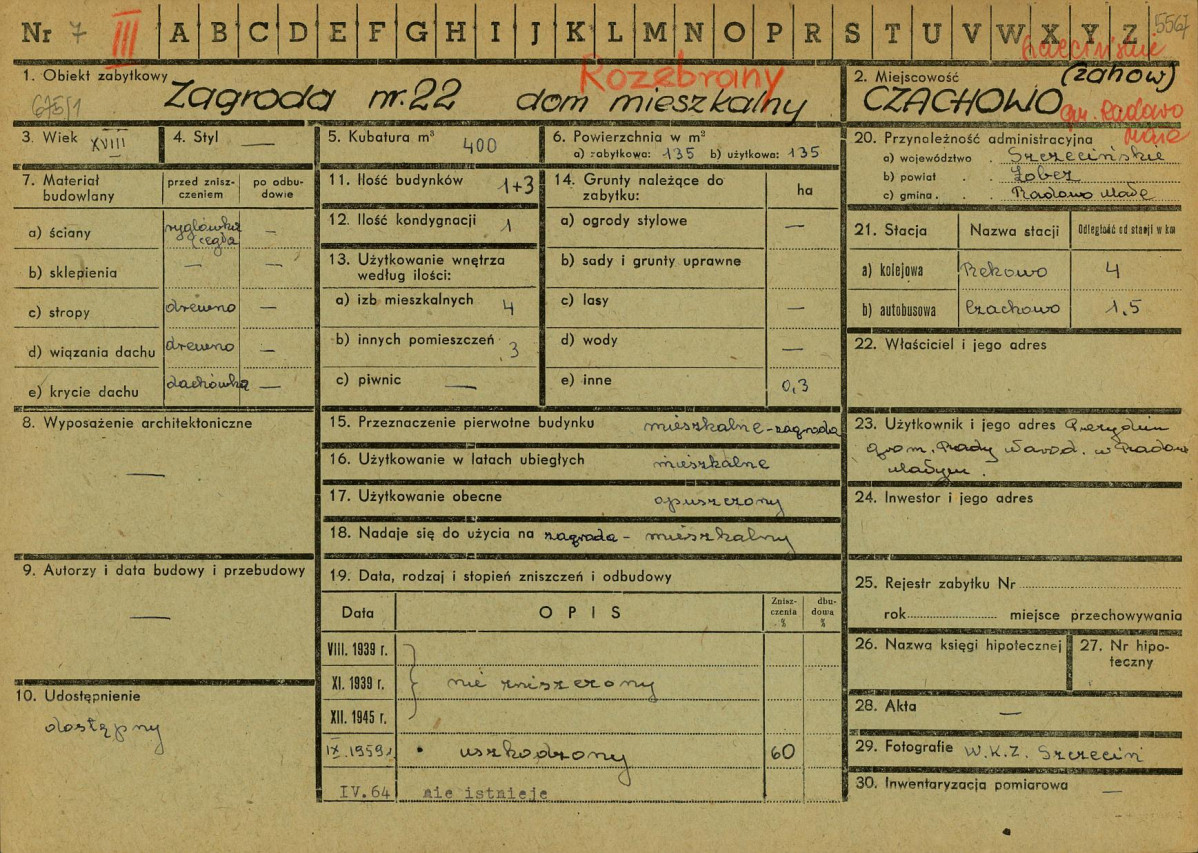 Nr 7 III A B C D E F G H I J K L M N O P R S T U V W X Y Z 5567
1. Obiekt zabytkowy
675/1
Zagroda nr. 22 dom mieszkalny
Rozebrany
2. Miejscowość (Zahow)
CZACHOWO
gm. Radowo
Małe
3. Wiek XVIII
4. Styl —
5. Kubatura m³ 400
6. Powierzchnia w m²
a) zabytkowa: 135 b) użytkowa: 135
7. Materiał budowlany
przed zniszczeniem
po odbudowie
a) ściany ryglówka cegła —
b) sklepienia — —
c) stropy drewno —
d) wiązania dachu drewno —
e) krycie dachu dachówka —
8. Wyposażenie architektoniczne
—
9. Autorzy i data budowy i przebudowy
—
10. Udostępnienie
dostępny
11. Ilość budynków 1+3
12. Ilość kondygnacji 1
13. Użytkowanie wnętrza
według ilości:
a) izb mieszkalnych 4
b) innych pomieszczeń 3
c) piwnic —
14. Grunty należące do
zabytku:
ha
a) ogrody stylowe —
b) sady i grunty uprawne
c) lasy —
d) wody —
e) inne 0,3
15. Przeznaczenie pierwotne budynku mieszkalne-zagroda
16. Użytkowanie w latach ubiegłych mieszkalne
17. Użytkowanie obecne opuszczony
18. Nadaje się do użycia na zagroda - mieszkalny
19. Data, rodzaj i stopień zniszczeń i odbudowy
Data OPIS Znisz-
czenia
%
dbu-
dowa
%
VIII. 1939 r.
XI. 1939 r. nie zniszczony
XII. 1945 r.
IX. 1959 r. uszkodzony 60
IV. 64 nie istnieje
20. Przynależność administracyjna
a) województwo . Szczecińskie
b) powiat . . Łobez
c) gmina . . Radowo Małe
21. Stacja Nazwa stacji Odległość od stacji w km
a) kolejowa Rekowo 4
b) autobusowa Czachowo 1,5
22. Właściciel i jego adres
23. Użytkownik i jego adres Prezydium
grom. Rady Narod. w Radowie
Małym.
24. Inwestor i jego adres
25. Rejestr zabytku Nr
rok miejsce przechowywania
26. Nazwa księgi hipotecznej
27. Nr hipo-
teczny
28. Akta —
29. Fotografie W.K.Z. Szczecin
30. Inwentaryzacja pomiarowa —